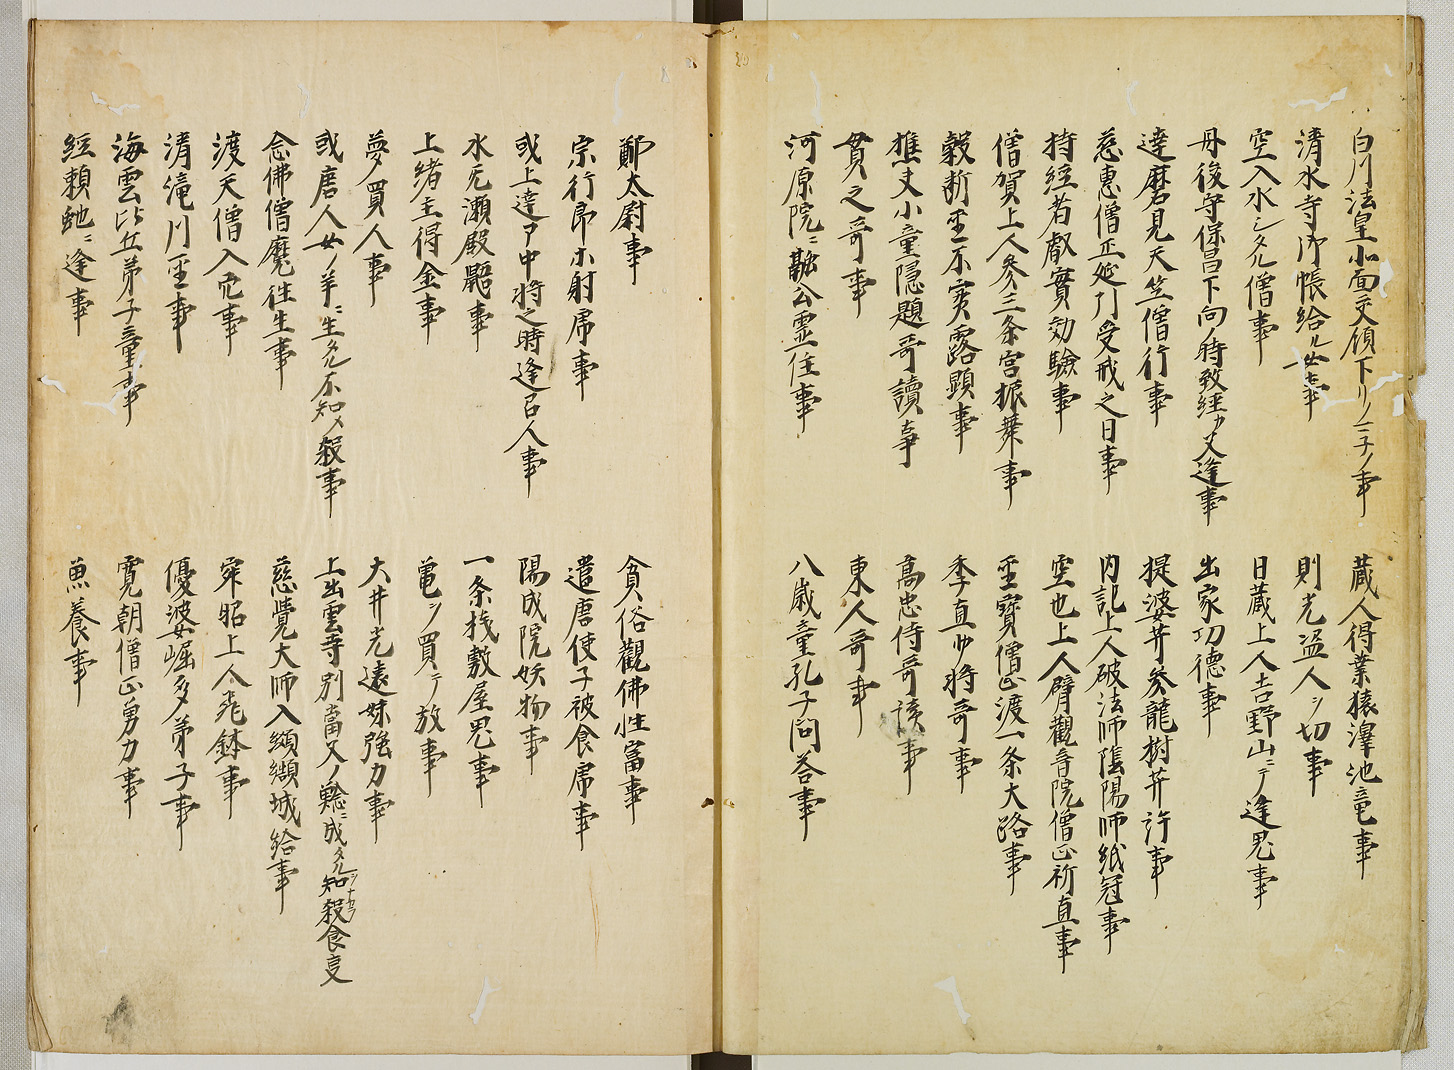 白川法皇北面受領下リノマネノ事
蔵人得業猿澤池竜事
清水寺御帳給ル女事
則光盗人ヲ切事
空入水シタル僧事
日蔵上人吉野山ニテ逢鬼事
丹後守保昌下向ノ時致経カ父逢事
出家功徳事
達磨見天竺僧行事
提婆菩参龍樹菩許事
慈恵僧正延引受戒之日事
内記上人破法師陰陽師紙冠事
持経者叡實効驗事
空也上人臂觀音院僧正祈直事
僧賀上人参三条宮振舞事
聖寳僧正渡一条大路事
穀断聖不實露顕事
季直少将哥事
樵夫小童隠題哥讀事
高忠侍哥読事
貫之哥事
東人哥事
河原院ニ融公霊住事
八歳童孔子問答事
鄭太尉事
貧俗觀佛性富事
宗行郎ホ射虎事
遣唐使子被食虎事
或上達ア中将之時逢召人事
陽成院妖物事
水无瀬殿鼯事
一条桟敷屋鬼事
上緒主得金事
亀ヲ買テ放事
夢買人事
大井光遠妹強力事
或唐人女ノ羊ニ生タル不知メ殺事
上出雲寺別當父ノ鯰ニ成タル知ナカラ殺食事
念佛僧魔徃生事
慈覺大師入纐纈城給事
渡天僧入穴事
寂昭上人飛鉢事
清滝川聖事
優婆崛多弟子事
海雲比丘弟子童事
寛朝僧正勇力事
経頼虵ニ逢事
魚養事